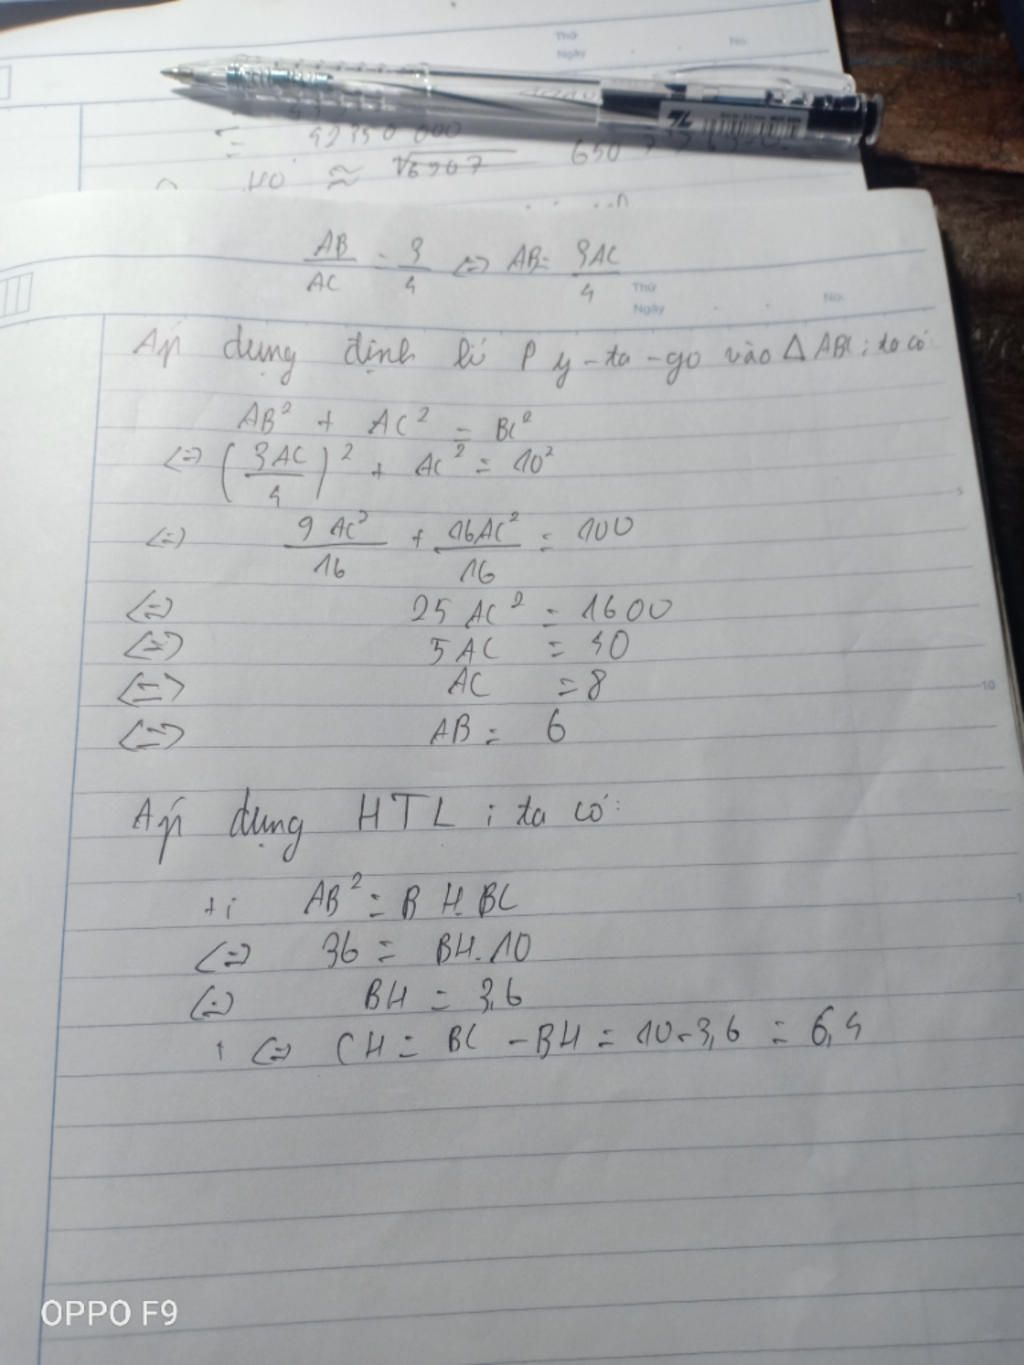 92750 000
Thứ
Ngày
No.
AB/AC = 3/4 <=> AB = 3AC/4
Thứ
Ngày
No.
Áp dụng định lí Py-ta-go vào Δ ABC; ta có:
AB² + AC² = BC²
<=> (3AC/4)² + AC² = 10²
<=> 9AC²/16 + 16AC²/16 = 100
5
<=> 25 AC² = 1600
<=> 5AC = 40
<=> AC = 8
10
<=> AB = 6
Áp dụng HTL; ta có:
+; AB² = BH.BC
<=> 36 = BH.10
<=> BH = 3,6
<=> CH = BC - BH = 10-3,6 = 6,4
OPPO F9